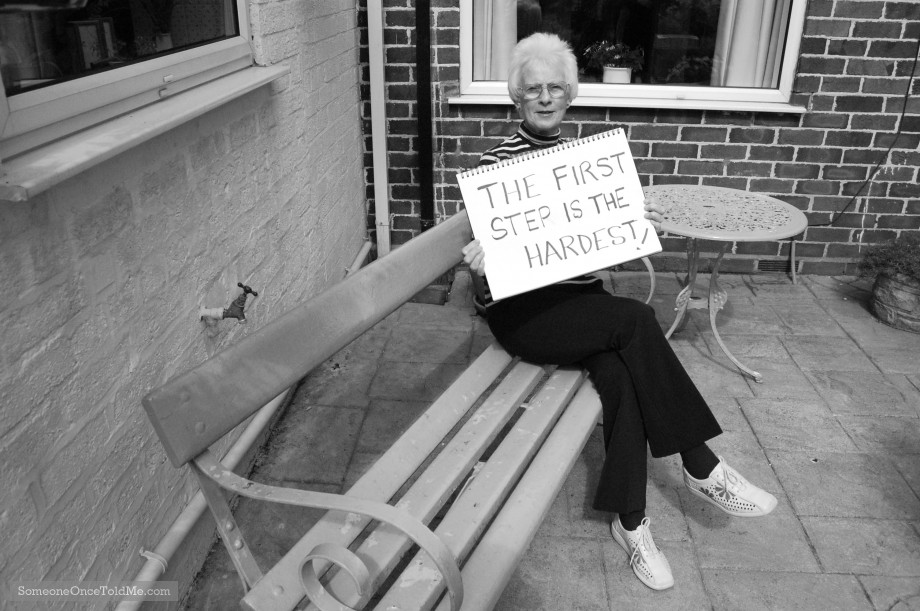 THE FIRST
STEP IS THE
HARDEST!
SomeoneOnceToldMe.com